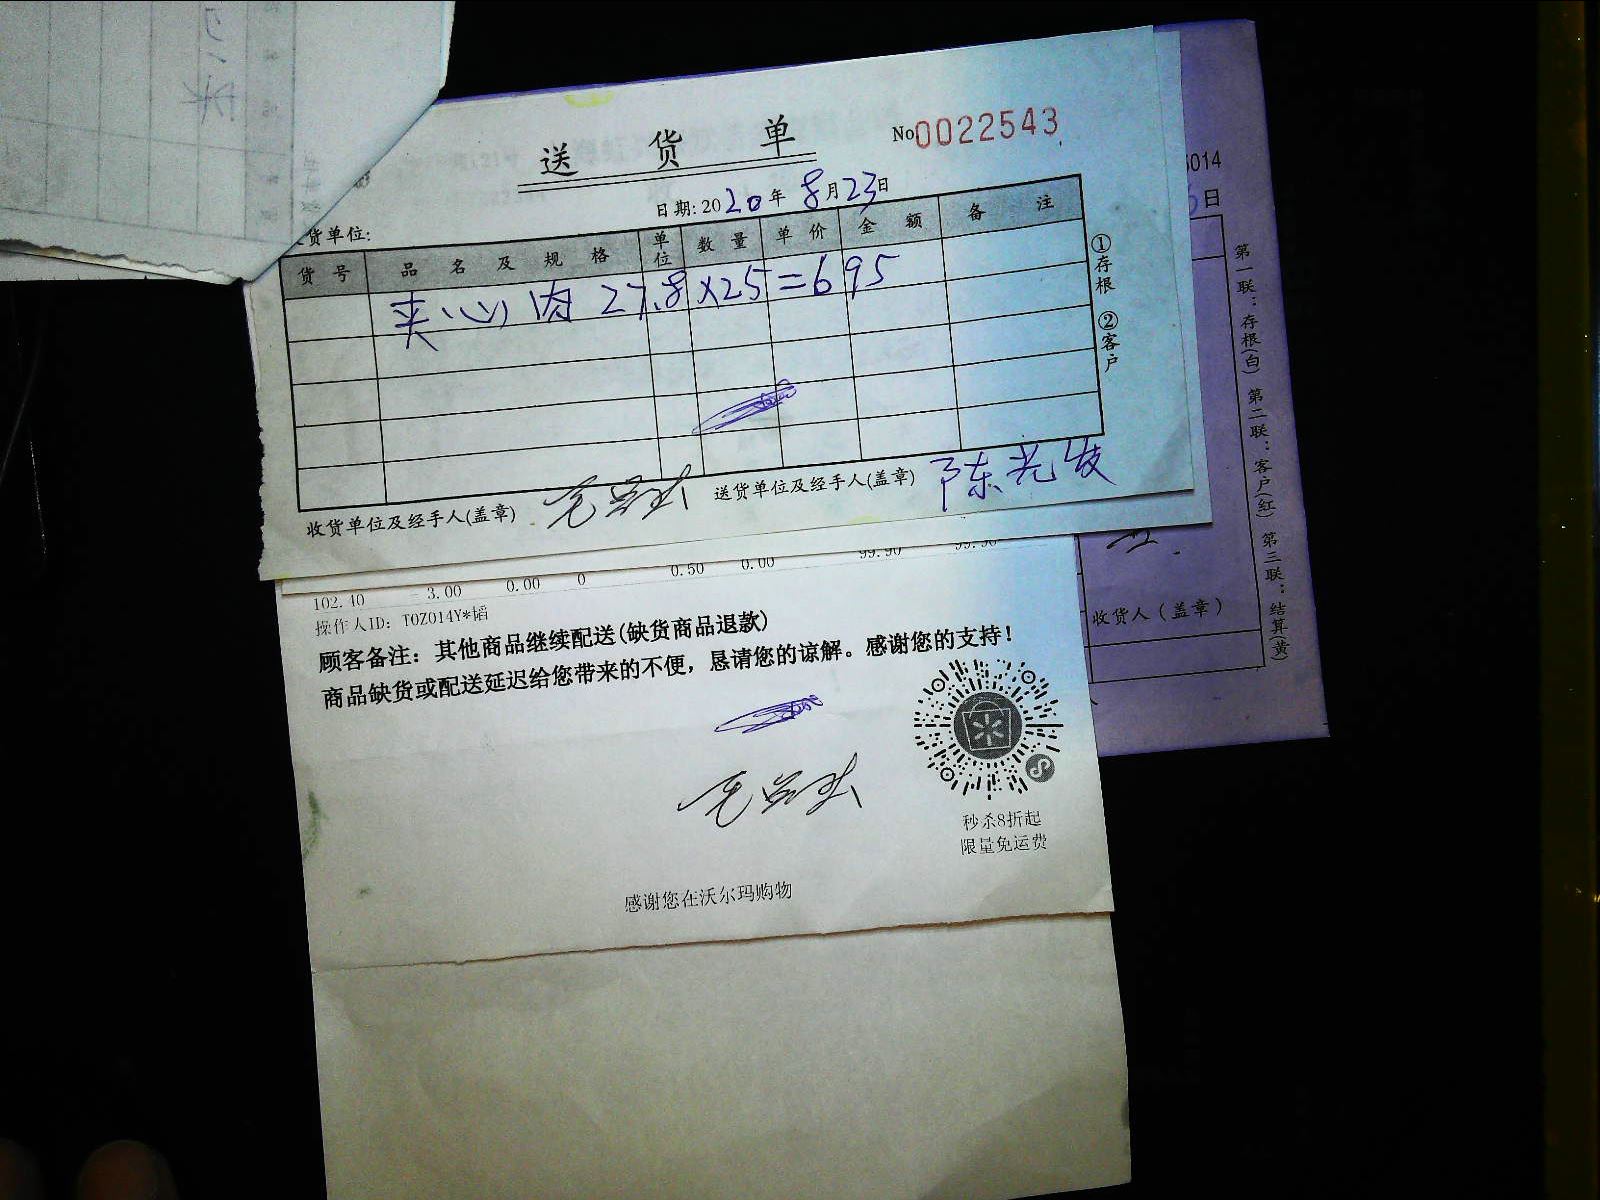 送货单
No0022543
日期:2020年8月23日
货单位:
货号 品名及规格 单位 数量 单价 金额 备注
夹心肉 27.8×25=695
①存根 ②客户
收货单位及经手人(盖章) 送货单位及经手人(盖章) 陈光发
102.40 3.00 0.00 0 0.50 0.00 99.90 99.90
操作人ID: TOZ014Y*韬
顾客备注：其他商品继续配送(缺货商品退款)
商品缺货或配送延迟给您带来的不便，恳请您的谅解。感谢您的支持！
秒杀8折起
限量免运费
感谢您在沃尔玛购物
5014
日
第一联：存根(白) 第二联：客户(红) 第三联：结算(黄)
收货人（盖章）